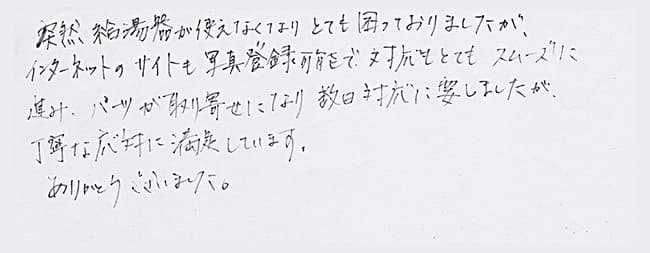 突然 給湯器が使えなくなり とても困っておりましたが、
インターネットのサイトも写真登録可能で対応もとてもスムーズに
進み、パーツが取り寄せになり数日対応に要しましたが、
丁寧な応対に満足しています。
ありがとうございました。